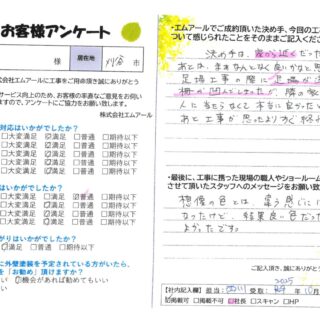 お客様アンケート
様 居住地 刈谷市
株式会社エムアールに工事をご用命頂き誠にありがとう
サービス向上のため、お客様の率直なご意見をお伺い
ますので、アンケートにご協力をお願い致します。
株式会社エムアール
対応はいかがでしたか?
□大変満足 ☑満足 □普通 □期待以下
□大変満足 ☑満足 □普通 □期待以下
□大変満足 ☑満足 □普通 □期待以下
□大変満足 ☑満足 □普通 □期待以下
いかがでしたか?
□大変満足 □満足 ☑普通 □期待以下
□大変満足 ☑満足 □普通 □期待以下
□大変満足 ☑満足 □普通 □期待以下
がりはいかがでしたか?
満足 □普通 □期待以下
に外壁塗装を予定されている方がいたら、
を「お勧め」頂けますか?
い ☑機会があれば勧めてもいい
ない
●エムアールでご成約頂いた決め手、今回の工
ついて感じられたことをそのままご記入くださ
決め手は、家から近くだった
あとは、まぁなんとなく良いかなと思
足場工事の際に
柵が凹んでしまったが、隣の家
人に当たらなくて本当に良かったと
あと工事が思ったより長く
●最後に、工事に携った現場の職人やショールーム
させて頂いたスタッフへのメッセージをお願い致
想像の色とは、違う感じに
なったけど、結果良い色だった
よかったです。
ご記入頂き、誠にありがとう
【社内記入欄】 担当: 西川 受取: 2025年 10月
☑掲載可 □掲載不可 ☑社長 □スキャン □HP